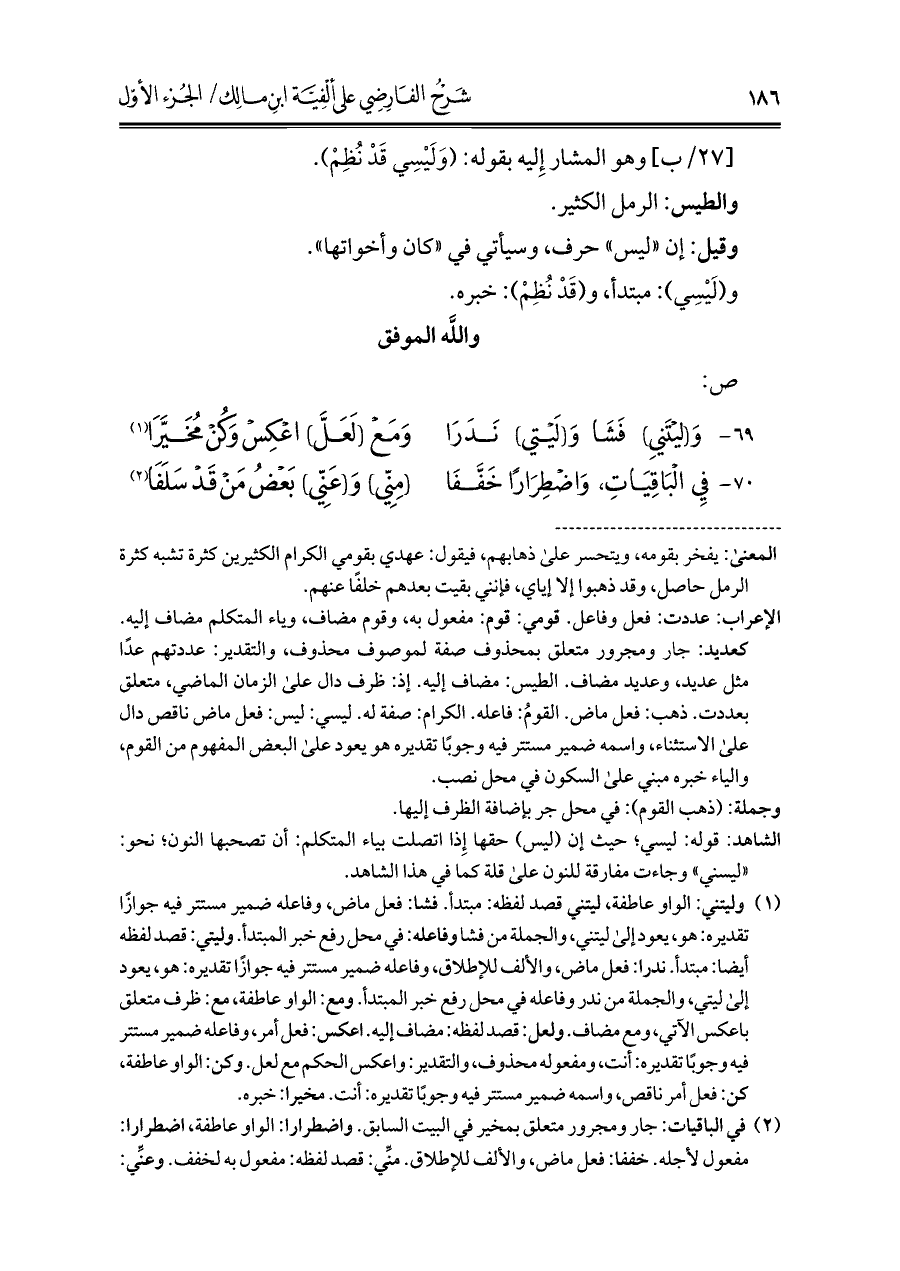 ١٨٦ شرح الفارضي على ألفية ابن مالك/ الجزء الأول
[٢٧/ ب] وهو المشار إليه بقوله: (وَلَيْسِي قَدْ نُظِمْ).
والطيس: الرمل الكثير.
وقيل: إن «ليس» حرف، وسيأتي في «كان وأخواتها».
و(لَيْسِي): مبتدأ، و(قَدْ نُظِمْ): خبره.
واللَّه الموفق
ص:
٦٩- وَ(لَيْتَنِي) فَشَا وَ(لَيْتِي) نَـدَرَا وَمَعْ (لَعَلَّ) اعْكِسْ وَكُنْ مُخَيَّرَا(١)
٧٠- فِي الْبَاقِيَاتِ، وَاضْطِرَارًا خَفَّـفَا (مِنِّي) وَ(عَنِّي) بَعْضُ مَنْ قَدْ سَلَفَا(٢)
المعنىٰ: يفخر بقومه، ويتحسر علىٰ ذهابهم، فيقول: عهدي بقومي الكرام الكثيرين كثرة تشبه كثرة
الرمل حاصل، وقد ذهبوا إلا إياي، فإنني بقيت بعدهم خلفًا عنهم.
الإعراب: عددت: فعل وفاعل. قومي: قوم: مفعول به، وقوم مضاف، وياء المتكلم مضاف إليه.
كعديد: جار ومجرور متعلق بمحذوف صفة لموصوف محذوف، والتقدير: عددتهم عدًا
مثل عديد، وعديد مضاف. الطيس: مضاف إليه. إذ: ظرف دال علىٰ الزمان الماضي، متعلق
بعددت. ذهب: فعل ماض. القومُ: فاعله. الكرام: صفة له. ليسي: ليس: فعل ماض ناقص دال
علىٰ الاستثناء، واسمه ضمير مستتر فيه وجوبًا تقديره هو يعود علىٰ البعض المفهوم من القوم،
والياء خبره مبني علىٰ السكون في محل نصب.
وجملة: (ذهب القوم): في محل جر بإضافة الظرف إليها.
الشاهد: قوله: ليسي؛ حيث إن (ليس) حقها إذا اتصلت بياء المتكلم: أن تصحبها النون؛ نحو:
«ليسني» وجاءت مفارقة للنون علىٰ قلة كما في هذا الشاهد.
(١) وليتني: الواو عاطفة، ليتني قصد لفظه: مبتدأ. فشا: فعل ماض، وفاعله ضمير مستتر فيه جوازًا
تقديره: هو، يعود إلىٰ ليتني، والجملة من فشا وفاعله: في محل رفع خبر المبتدأ. وليتي: قصد لفظه
أيضا: مبتدأ. ندرا: فعل ماض، والألف للإطلاق، وفاعله ضمير مستتر فيه جوازًا تقديره: هو، يعود
إلىٰ ليتي، والجملة من ندر وفاعله في محل رفع خبر المبتدأ. ومع: الواو عاطفة، مع: ظرف متعلق
باعكس الآتي، ومع مضاف. ولعل: قصد لفظه: مضاف إليه. اعكس: فعل أمر، وفاعله ضمير مستتر
فيه وجوبًا تقديره: أنت، ومفعوله محذوف، والتقدير: واعكس الحكم مع لعل. وكن: الواو عاطفة،
كن: فعل أمر ناقص، واسمه ضمير مستتر فيه وجوبًا تقديره: أنت. مخيرا: خبره.
(٢) في الباقيات: جار ومجرور متعلق بمخير في البيت السابق. واضطرارا: الواو عاطفة، اضطرارا:
مفعول لأجله. خففا: فعل ماض، والألف للإطلاق. منِّي: قصد لفظه: مفعول به لخفف. وعنِّي: